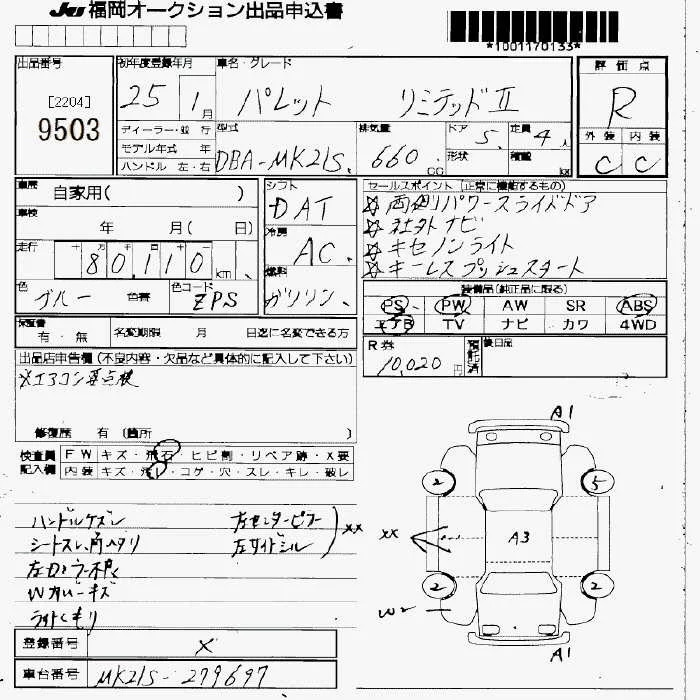 JU 福岡オークション出品申込書
*1001170133*
出品番号 初年度登録年月 車名・グレード 評価点
[2204] 25 1月 パレット リミテッドII R
9503 外装 内装
ディーラー・並行 型式 排気量 ドア 定員
モデル年式 年 DBA-MK21S. 660 CC 5. 4. C C
ハンドル 左・右 形状 積載 kg
車歴 自家用( ) シフト セールスポイント (正常に機能するもの)
DAT ☆両側パワースライドドア
車検 年 月( 日) 冷房 ☆社外ナビ
走行 十万 万 千 百 十 AC. ☆キセノンライト
80,110 km 燃料 ☆キーレスプッシュスタート
色 ブルー 色替 色コード ZPS ガソリン、 装備品(純正品に限る)
PS PW AW SR ABS
保証書 有・無 名変期限 月 日迄に名変できる方 エアB TV ナビ カワ 4WD
出品店申告欄 (不良内容・欠品など具体的に記入して下さい) R券 10,020円 預託済 後日品
※エアコン要点検
修復歴 有 (箇所 )
検査員 FW キズ・飛石・ヒビ割・リペア跡・X要
記入欄 内装 キズ・汚レ・コゲ・穴・スレ・キレ・破レ
A1
2 5
ハンドルケズレ 左センターピラー
シートスレ、 左サイドシル XX XX A3
Wカバーキズ 2 2
ライトくもり W2
A1
登録番号 X
車台番号 MK21S-279697